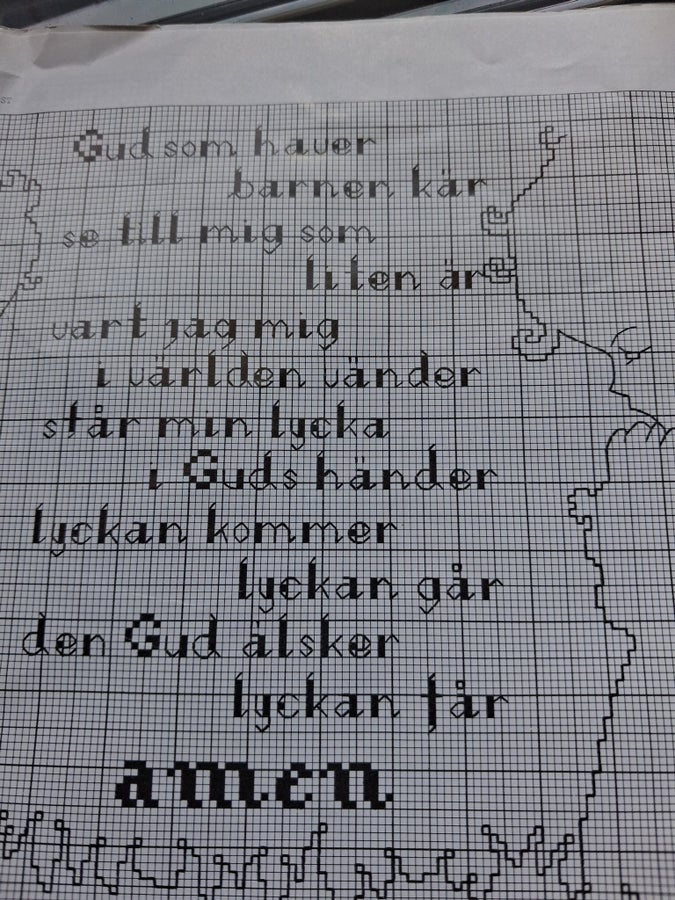 ST
Gud som haver
barnen kär
se till mig som
liten är
vart jag mig
i världen vänder
står min lycka
i Guds händer
lyckan kommer
lyckan går
den Gud älsker
lyckan får
amen